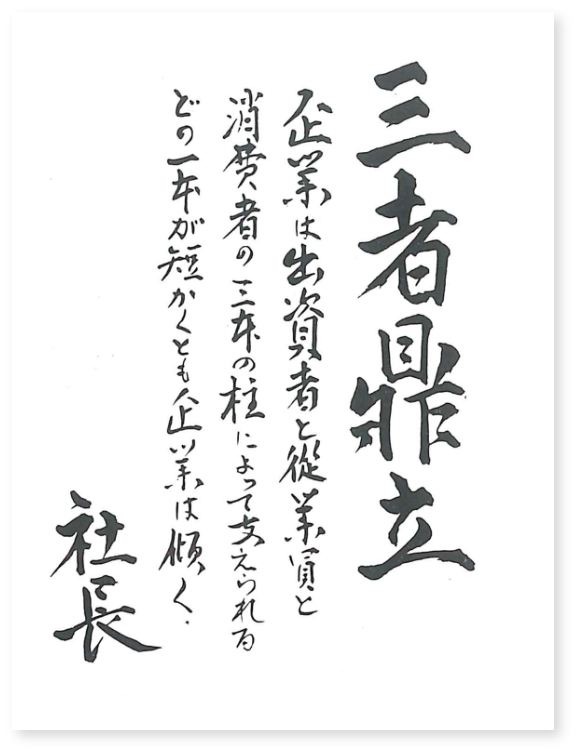 三者鼎立
企業は出資者と従業員と
消費者の三本の柱によって支えられる
どの一本が短かくとも企業は傾く.
社長